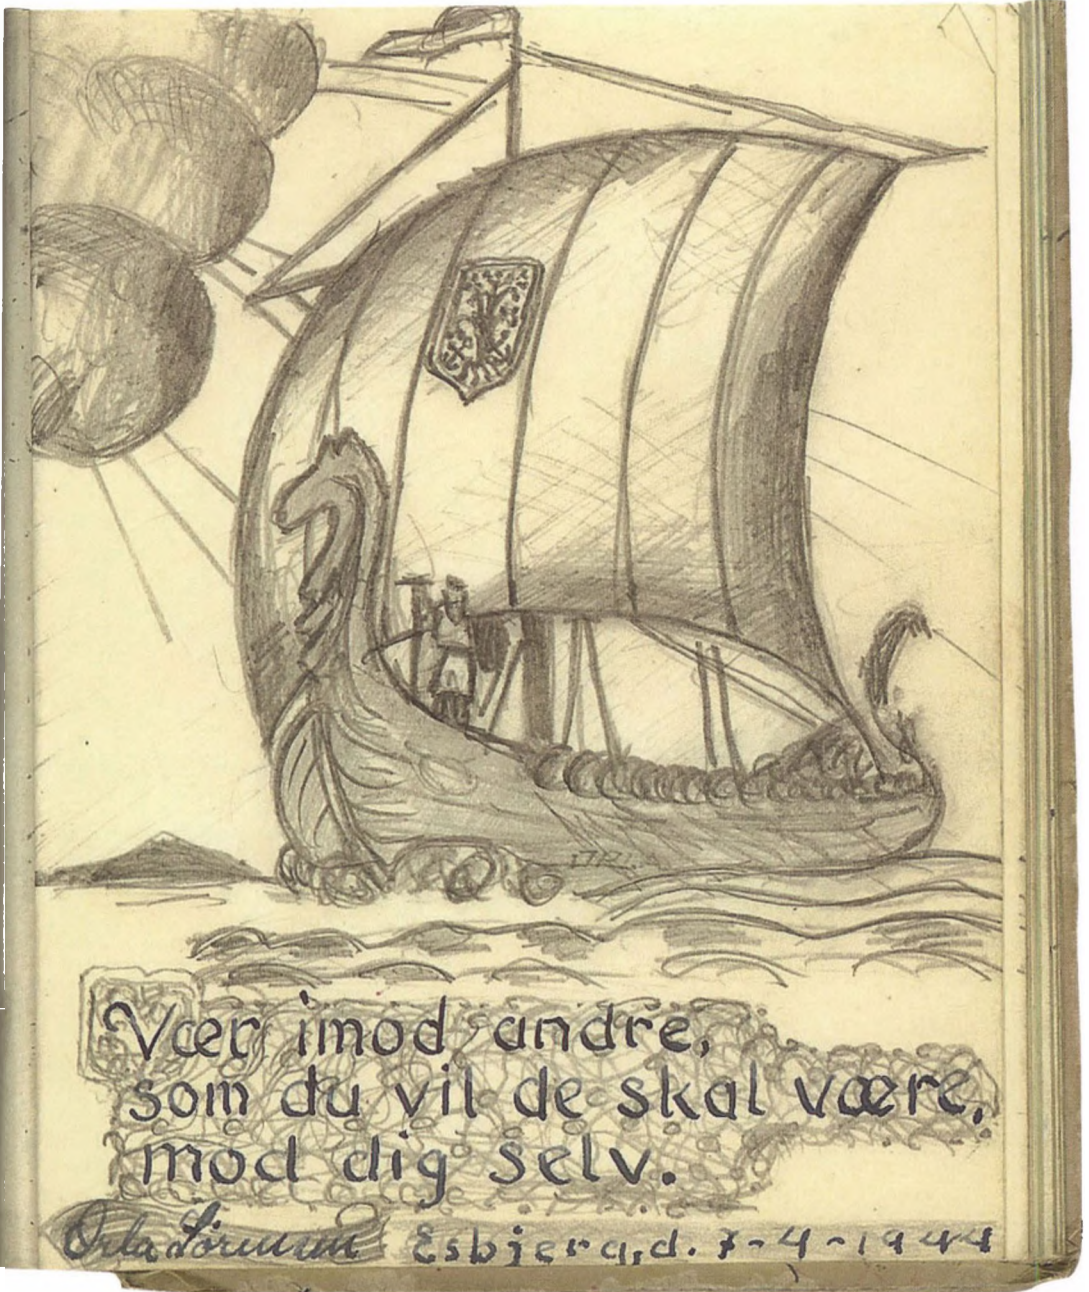 Vær imod andre,
som du vil de skal være,
mod dig selv.
Orla Sørensen Esbjerg, d. 7-4-1944